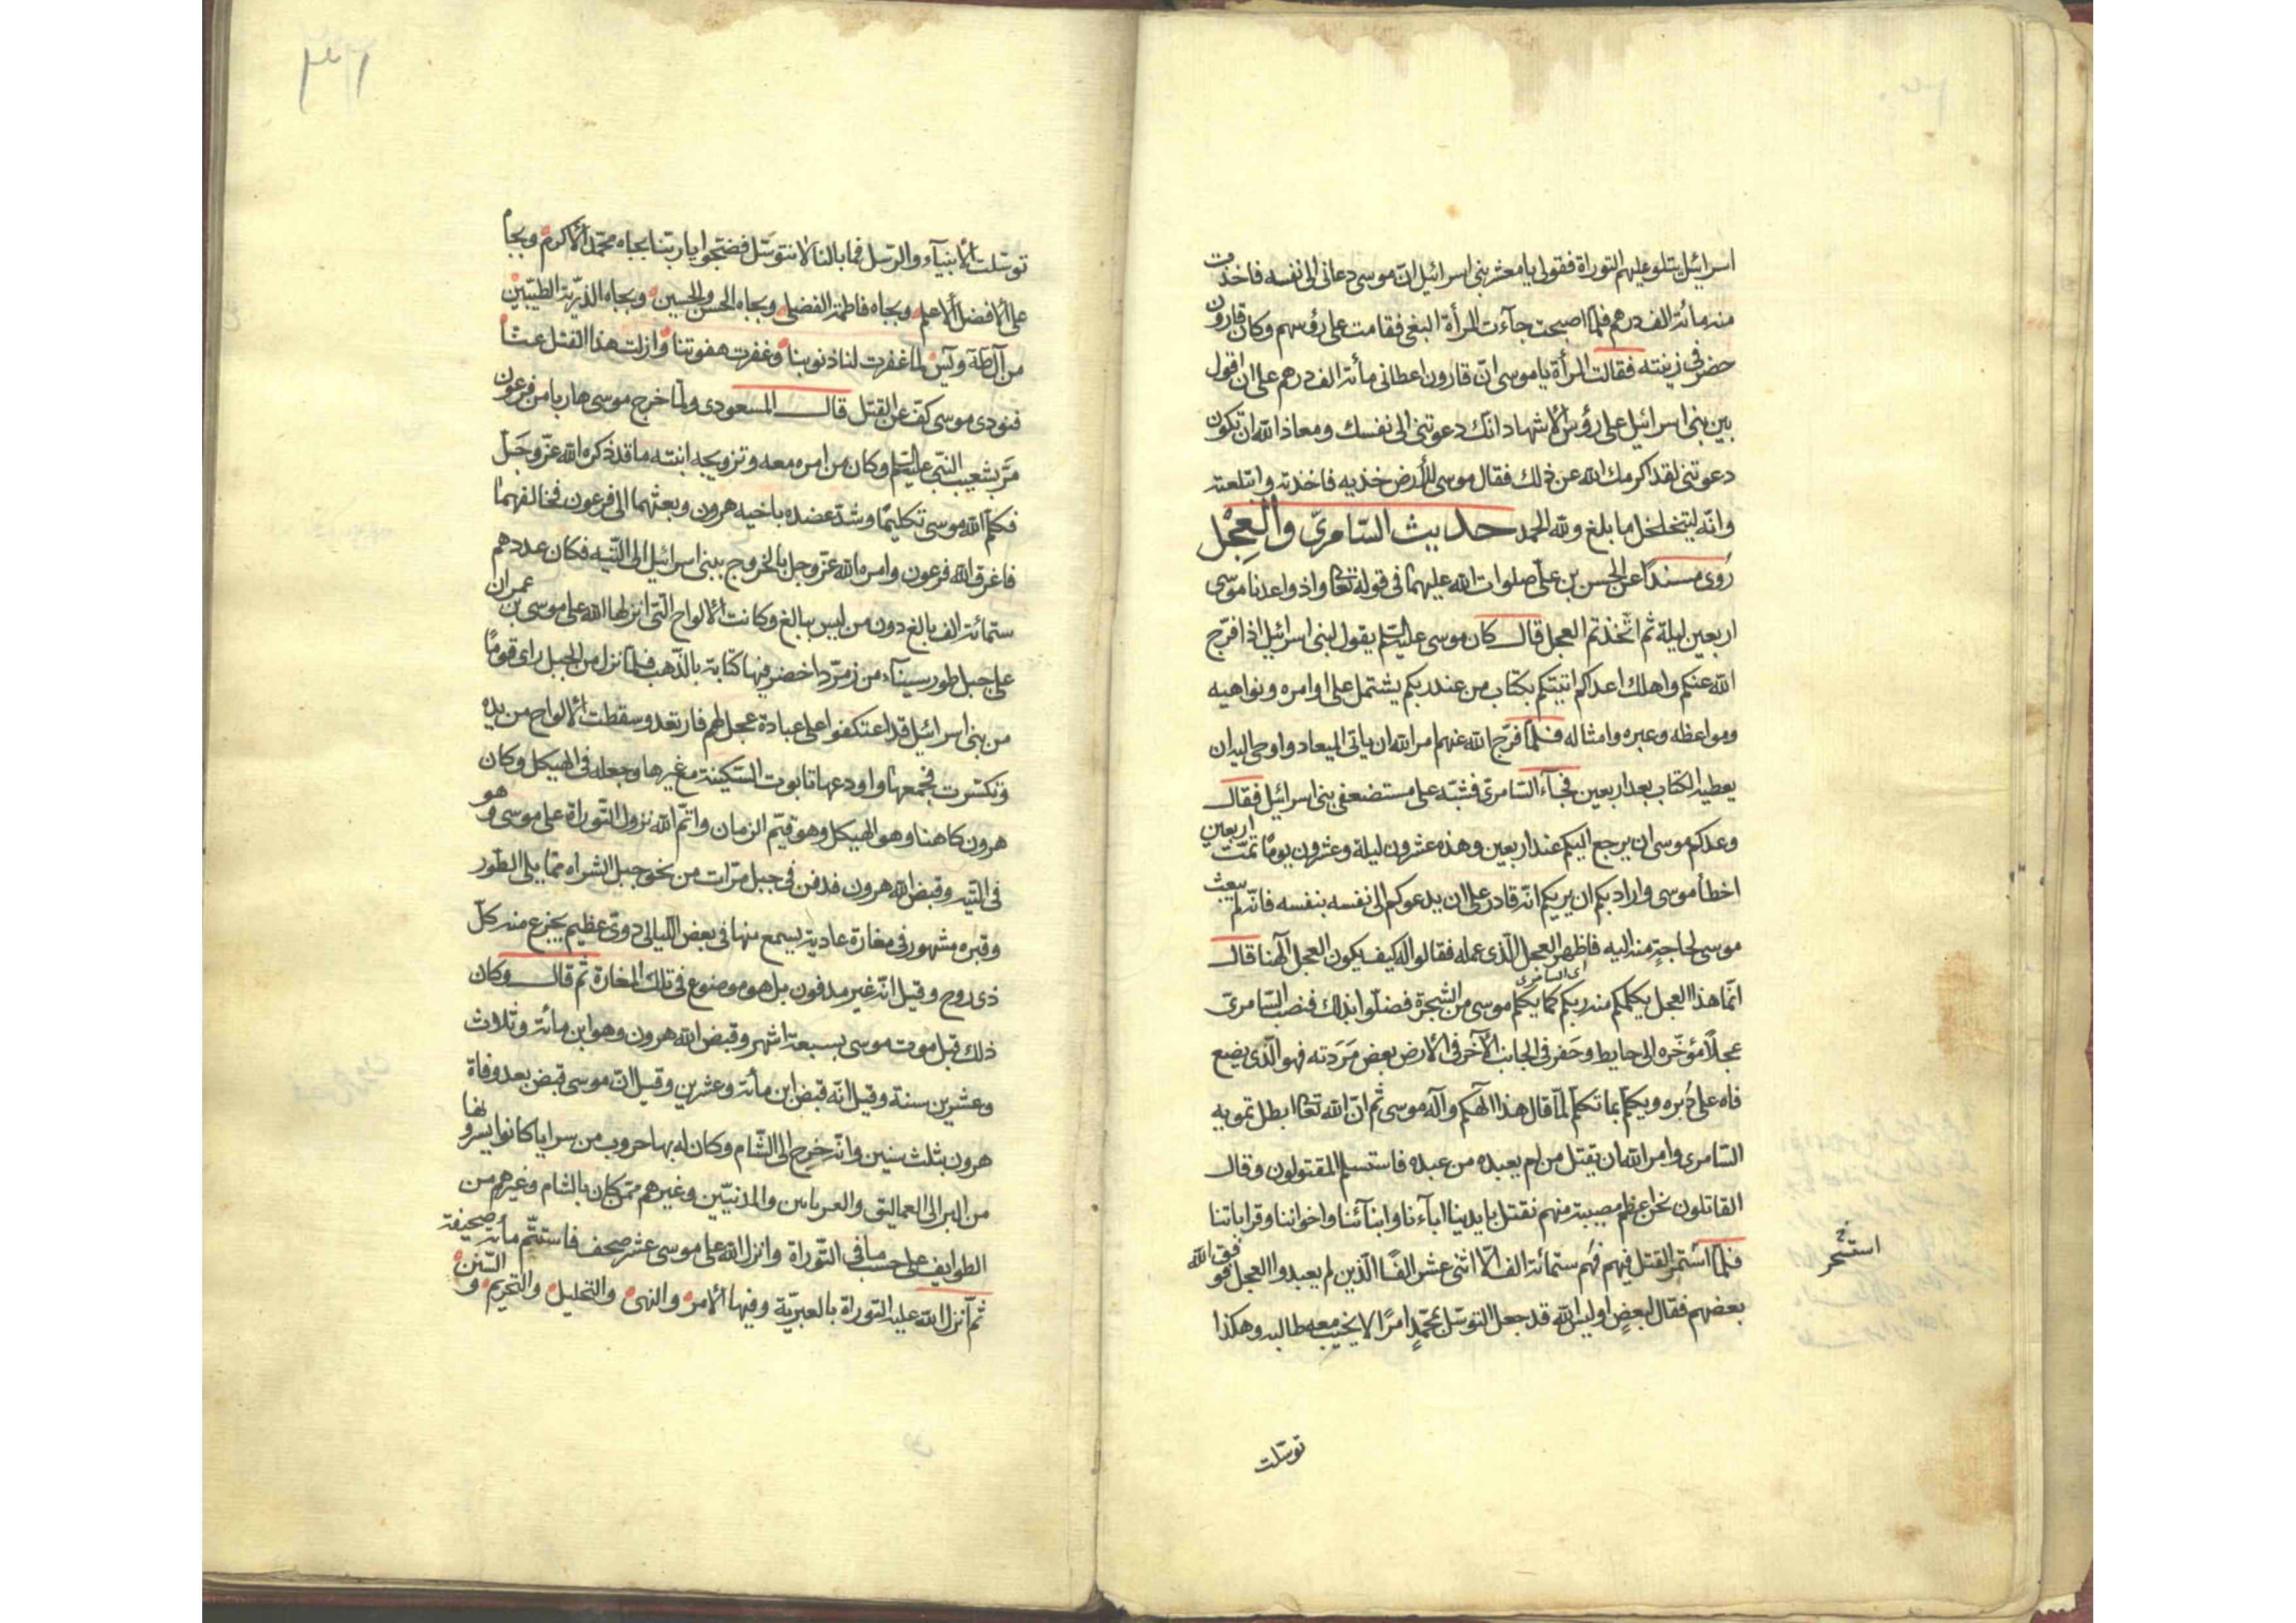 اسرائيل يتلو عليهم التوراة فقولى يا معشر بنى اسرائيل انّ موسى دعانى الى نفسه فاخذت
منه مائة الف درهم فلمّا اصبحت جآءت المرأة البغى فقامت على رؤسهم وكان قارون
حضر فى زينته فقالت المرأة يا موسى انّ قارون اعطانى مأئة الف درهم على ان اقول
بين بنى اسرائيل على رؤس الاشهاد انّك دعوتنى الى نفسك ومعاذ الله ان تكون
دعوتنى لقد اكرمك الله عن ذلك فقال موسى للأرض خذيه فاخذته وابتلعته
وانّه ليتخلخل ما بلغ ولله الحمد حديث السّامرىّ والعجل
روى مسندًا عن الحسن بن علىّ صلوات الله عليهما فى قوله تعا واذ واعدنا موسى
اربعين ليلة ثم اتّخذتم العجل قال كان موسى عليه السّلم يقول لبنى اسرائيل اذا فرّج
الله عنكم واهلك اعداءكم اتيتكم بكتاب من عند ربكم يشتمل على اوامره ونواهيه
ومواعظه وعبره وامثاله فلمّا فرّج الله عنهم امر الله ان ياتى الميعاد واوحى اليه ان
يعطيه الكتاب بعد اربعين فجآء السّامرىّ فشبّه على مستضعفى بنى اسرائيل فقال
وعدكم موسى ان يرجع اليكم عند اربعين وهذه عشرون ليلة وعشرون يومًا تمّت اربعين
اخطأ موسى واراد بكم ان يريكم انّه قادر على ان يدعوكم الى نفسه بنفسه فانّه لم يبعث
موسى لحاجةٍ منه اليه فاظهر العجل الّذى عمله فقالوا له كيف يكون العجل آلهنا قال
اى السامرى
انّما هذا العجل يكلمكم منه ربكم كما يكلم موسى من الشجرة فضلّوا بذلك فنصب السّامرىّ
عجلًا مؤخّره الى حايط وحفر فى الجانب الآخر فى الأرض بعض مَرَدته فهو الّذى يضع
فاه على دُبره ويكلّم بما تكلّم لمّا قال هذا آلهكم وآله موسى ثم انّ الله تعا ابطل تمويه
السّامرى وامر الله ان يقتل من لم يعبده من عبده فاستسلم المقتولون وقال
القاتلون نحن اعظم مصيبة منهم نقتل بايدينا اباءنا وابنآئنا واخواننا وقراباتنا
فلمّا استمرّ القتل فيهم فهُم ستمائة الف الّا اثنى عشر الفًا الّذين لم يعبدوا العجل فوفق الله
استحر خ
بعضهم فقال لبعضٍ اوليس الله قد جعل التوسّل بمحمّدٍ امرًا لا يخيب معه طالبه وهكذا
توسّلت
٣١
توسّلت الأنبيآء والرّسل فما بالنا لا نتوسّل فضجّوا يا ربّنا بجاه محمّد الأكرم وبجاه
على الأفضل الأعلم وبجاه فاطمة الفضلى وبجاه الحسن والحسين وبجاه الذّريّة الطيّبين
من آل طه ويس لما غفرت لنا ذنوبنا وغفرت هفوتنا وازلت هذا القتل عنّا
فنودى موسى كفّ عن القتل قال المسعودى ولمّا خرج موسى هاربا من فرعون
مرّ بشعيب النبىّ عليه السّلم وكان من امره معه وتزويجه ابنته ما قد ذكره الله عزّ وجلّ
فكلّم الله موسى تكليمًا وشدّ عضده باخيه هرون وبعثهما الى فرعون فخالفهما
فاغرق الله فرعون وامره الله عزّ وجل بالخروج ببنى اسرائيل الى التّيه فكان عددهم
ستمائة الف بالغ دون من ليس ببالغ وكانت الألواح الّتى انزلها الله على موسى بن عمران
على جبل طور سينآء من زمرّد اخضر فيها كتابة بالذّهب فلمّا نزل من الجبل راى قومًا
من بنى اسرائيل قد اعتكفوا على عبادة عجل لهم فارتعد وسقطت الألواح من يده
وتكسّرت فجمعها واودعها تابوت السّكينة مع غيرها وجعله فى الهيكل وكان
هرون كاهنا وهو الهيكل وهو قيّم الزمان واتمّ الله نزول التّوراة على موسى وهو
فى التّيه وقبض الله هرون فدفن فى جبل مرّات من نحو جبل الشراه ممّا يلى الطّور
وقبره مشهور فى مغارة عادية يسمع منها فى بعض اللّيالى دوىّ عظيم يجزع منه كلّ
ذى روح وقيل انّه غير مدفون بل هو موضوع فى تلك المغارة ثمّ قال وكان
ذلك قبل موت موسى بسبعة اشهر وقبض الله هرون وهو ابن مأئة وثلاث
وعشرين سنة وقيل انّه قبض ابن مأئة وعشرين وقيل انّ موسى قبض بعد وفاة
هرون بثلث سنين وانّه خرج الى الشّام وكان له بها حروب من سرايا كانوا يسرونها
من البر الى العماليق والعربانين والمدنيّين وغيرهم ممّن كان بالشام وغيرهم من
الطوايف على حسب ما فى التّوراة وانزل الله على موسى عشر صحف فاستتمّ مأئة صحيفة
ثمّ أنزل الله عليه التوراة بالعبريّة وفيها الأمر والنهى والتحليل والتحريم والسّنن و